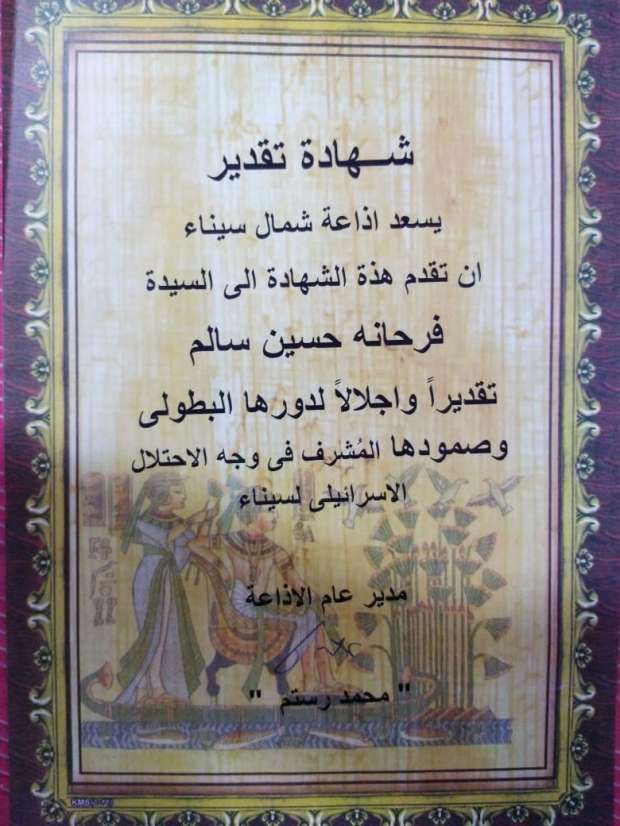 شـــهادة تقدير
يسعد اذاعة شمال سيناء
ان تقدم هذة الشهادة الى السيدة
فرحانه حسين سالم
تقديراً واجلالاً لدورها البطولى
وصمودها المُشرف فى وجه الاحتلال
الاسرائيلى لسيناء
مدير عام الاذاعة
" محمد رستم "